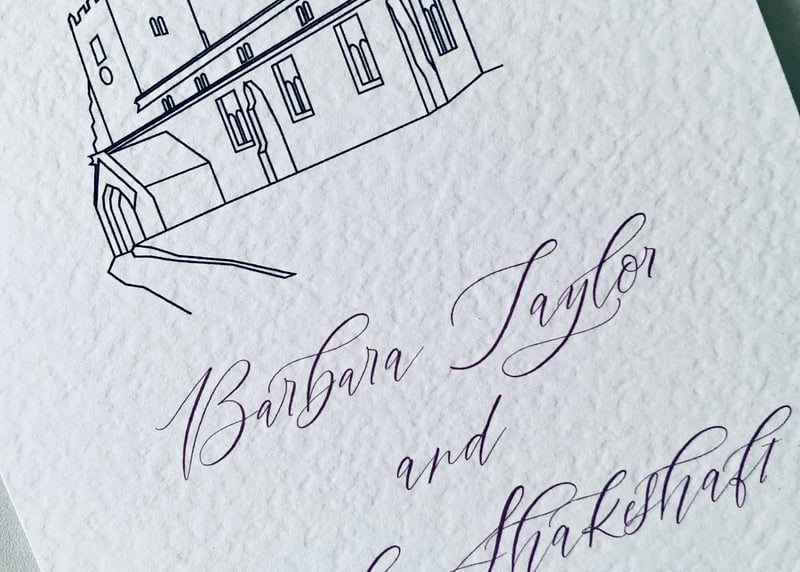 Barbara Taylor
and
Shakeshaft